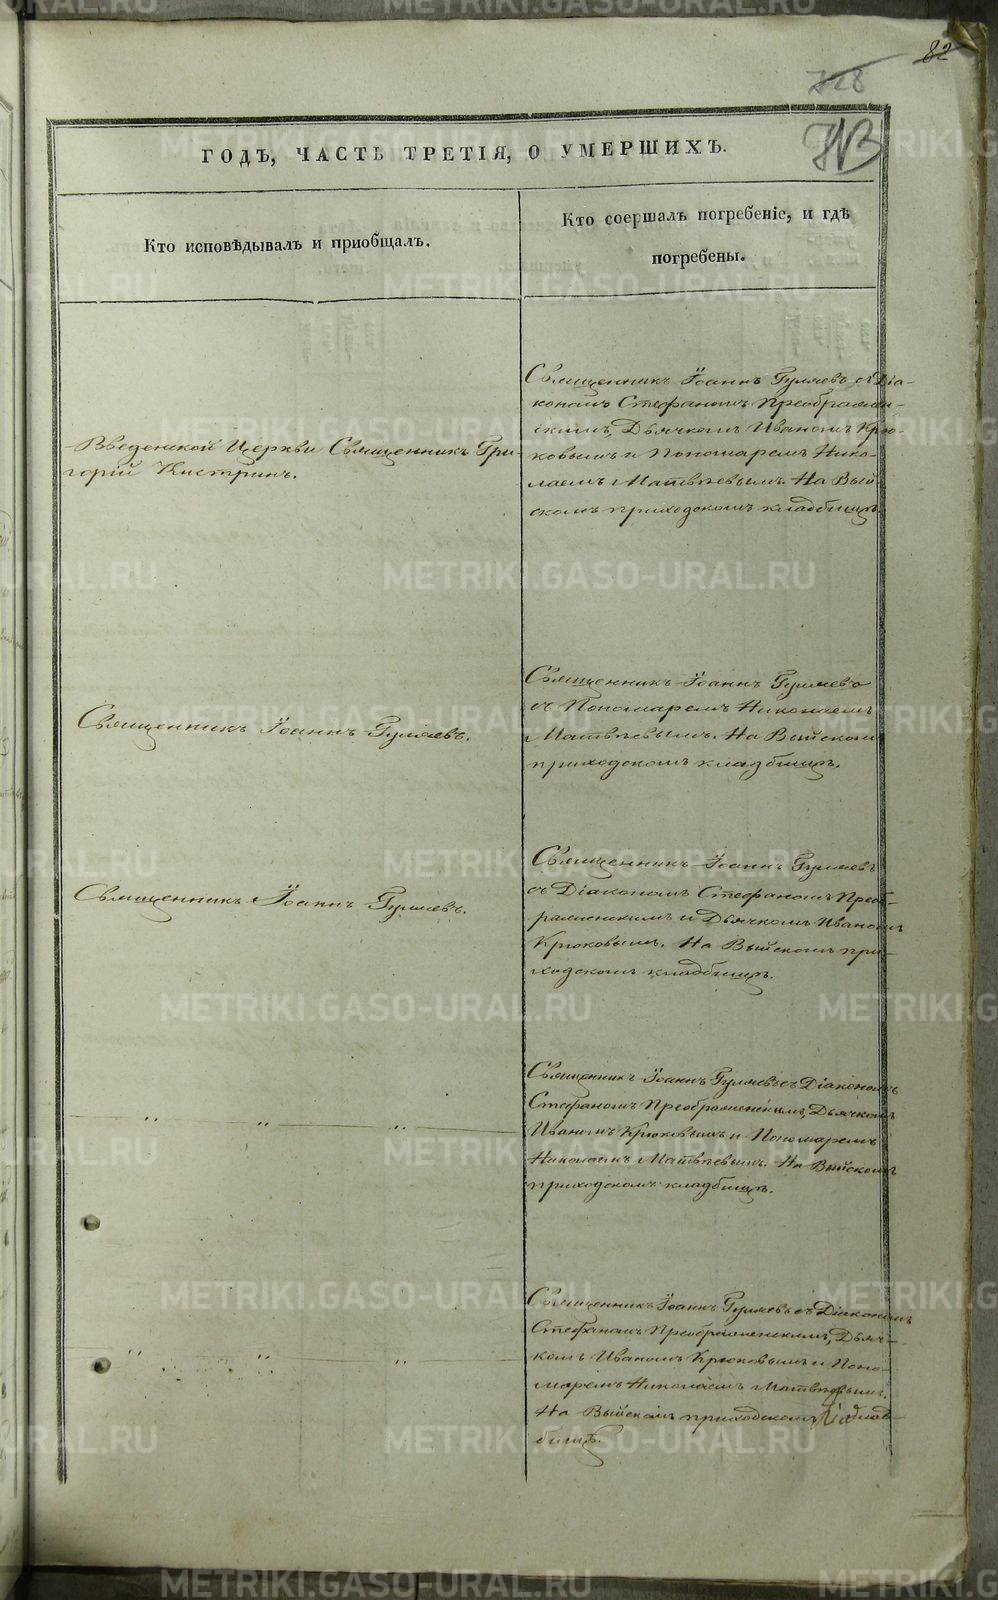 82
728
ГОДЪ, ЧАСТЬ ТРЕТІЯ, О УМЕРШИХЪ.
Кто исповѣдывалъ и пріобщалъ.
Кто соершалъ погребеніе, и гдѣ
погребены.
Введенской Церкви Священникъ Гри-
горій Кистринъ.
Священникъ Іоаннъ Гуляевъ съ Діа-
кономъ Стефаномъ Преображен-
скимъ, Дьячкомъ Иваномъ Крю-
ковымъ и Пономаремъ Нико-
лаемъ Матвѣевымъ. На Вый-
скомъ приходскомъ кладбищѣ.
Священникъ Іоаннъ Гуляевъ.
Священникъ Іоаннъ Гуляевъ
съ Пономаремъ Николаемъ
Матвѣевымъ. На Выйскомъ
приходскомъ кладбищѣ.
Священникъ Іоаннъ Гуляевъ.
Священникъ Іоаннъ Гуляевъ
съ Діакономъ Стефаномъ Преоб-
раженскимъ и Дьячкомъ Иваномъ
Крюковымъ. На Выйскомъ при-
ходскомъ кладбищѣ.
„ „ „
Священникъ Іоаннъ Гуляевъ съ Діакономъ
Стефаномъ Преображенскимъ, Дьячкомъ
Иваномъ Крюковымъ и Пономаремъ
Николаемъ Матвѣевымъ. На Выйскомъ
приходскомъ кладбищѣ.
„ „ „
Священникъ Іоаннъ Гуляевъ съ Діакономъ
Стефаномъ Преображенскимъ, Дьяч-
комъ Иваномъ Крюковымъ и Поно-
маремъ Николаемъ Матвѣевымъ.
На Выйскомъ приходскомъ клад-
бищѣ.
METRIKI.GASO-URAL.RU